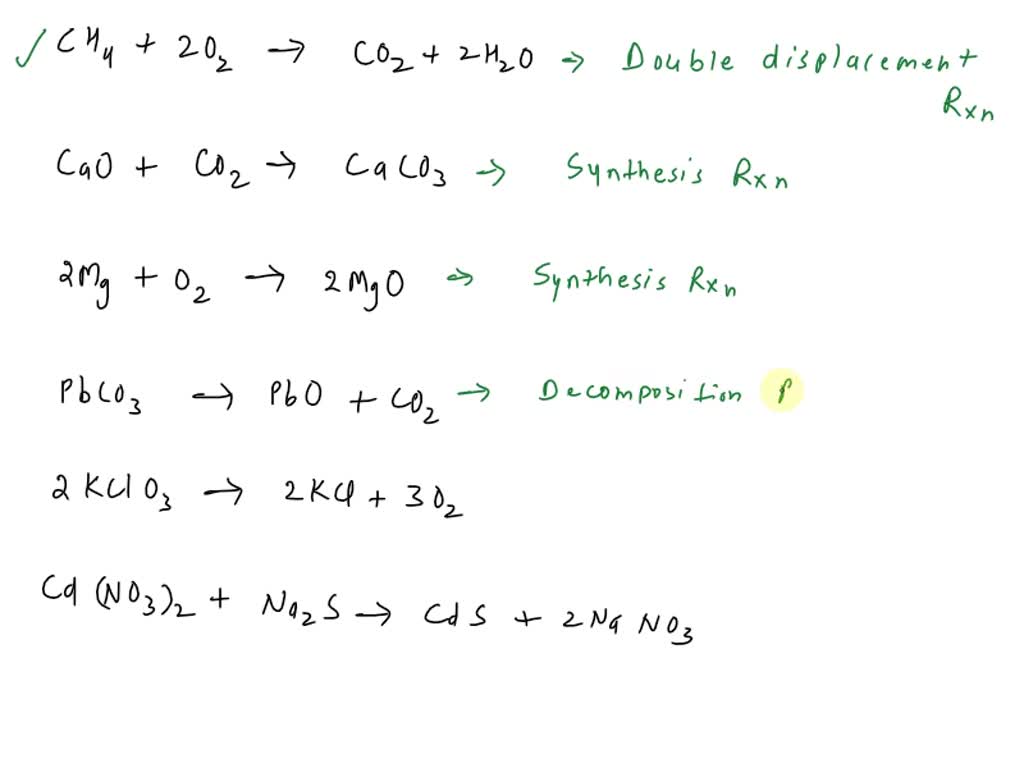 ✓ CH₄ + 2O₂ → CO₂ + 2H₂O → Double displacement
Rxn
CaO + CO₂ → CaCO₃ → Synthesis Rxn
2Mg + O₂ → 2MgO → Synthesis Rxn
PbCO₃ → PbO + CO₂ → Decomposition
2KClO₃ → 2KCl + 3O₂
Cd(NO₃)₂ + Na₂S → CdS + 2NaNO₃